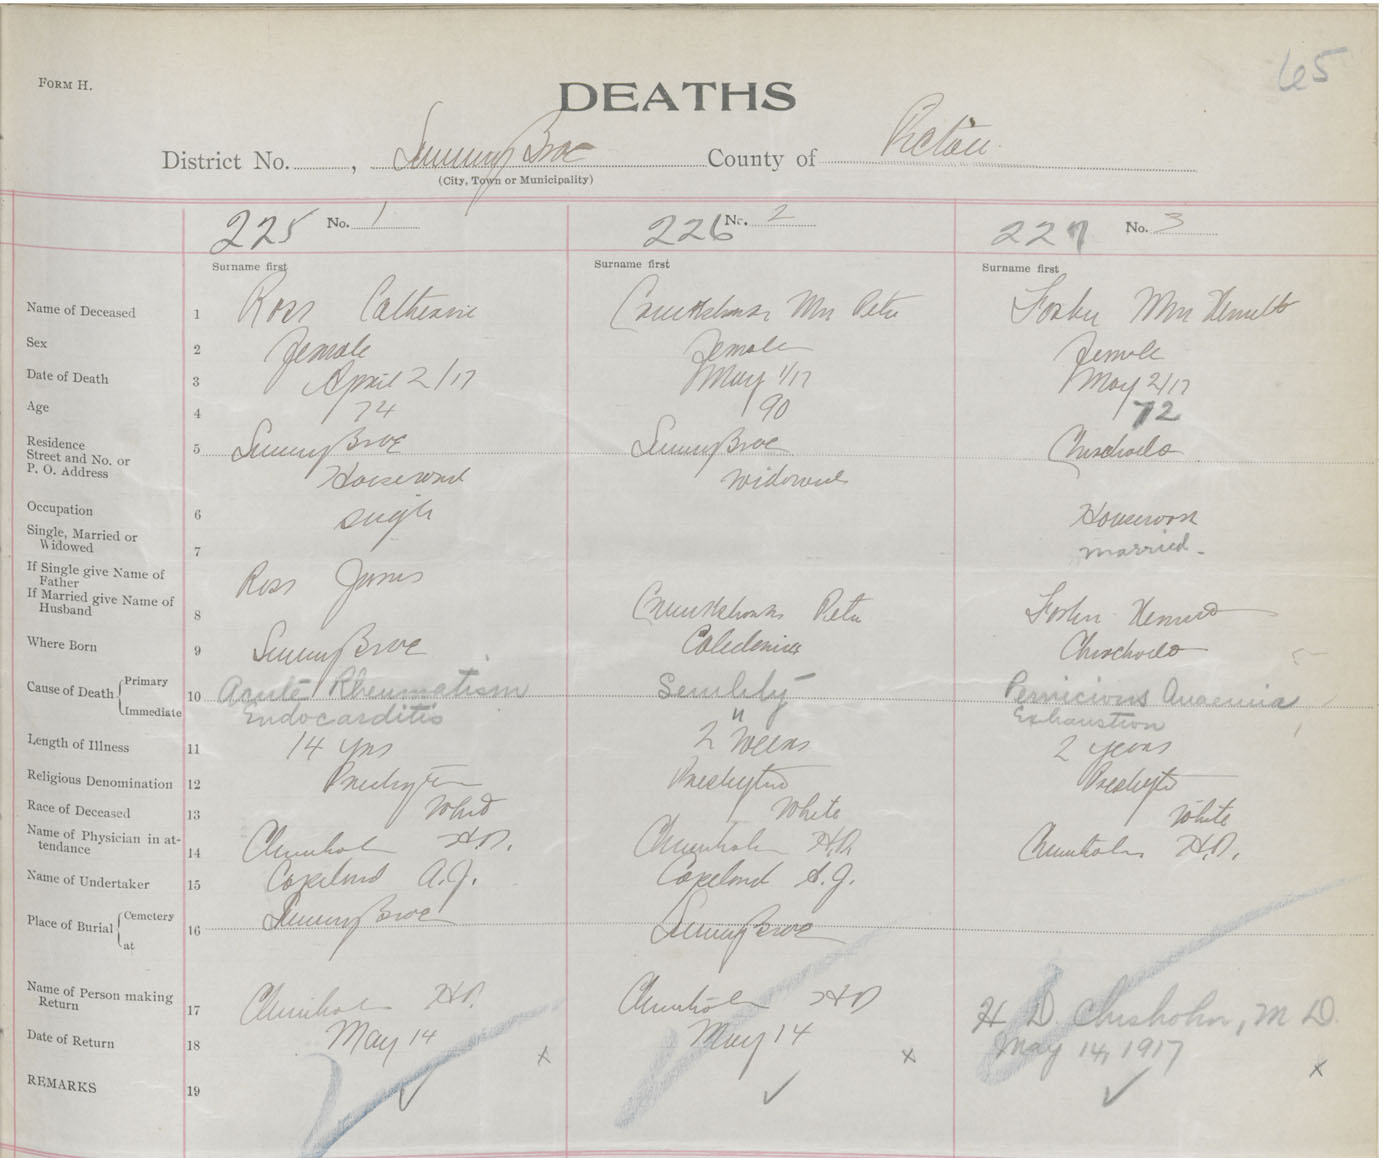 65
FORM H.
DEATHS
District No. , Sunny Brae County of Pictou
(City, Town or Municipality)
225 No. 1 226 No. 2 227 No. 3
Surname first Surname first Surname first
Name of Deceased 1 Ross Catherine Mrs Peter Mrs
Sex 2 Female Female Female
Date of Death 3 April 2/17 May 1/17 May 2/17
Age 4 74 90 72
Residence
Street and No. or 5 Sunny Brae Sunny Brae
P. O. Address
Housework Widowed
Occupation 6 Single Housework
Single, Married or
Widowed 7 married.
If Single give Name of
Father Ross James
If Married give Name of
Husband 8 Peter
Where Born 9 Sunny Brae Caledonia
Cause of Death { Primary 10 Acute Rheumatism Senility Pernicious Anaemia
Immediate Endocarditis " Exhaustion
Length of Illness 11 14 yrs 2 Weeks 2 years
Religious Denomination 12
Race of Deceased 13 White White White
Name of Physician in at-
tendance 14 Chisholm H.D. Chisholm H.D. Chisholm H.D.
Name of Undertaker 15 Copeland A.J. Copeland A.J.
Place of Burial { Cemetery 16 Sunny Brae Sunny Brae
at
Name of Person making
Return 17 Chisholm H.D. Chisholm H D H D Chisholm, M D.
Date of Return 18 May 14 May 14 May 14, 1917
REMARKS 19